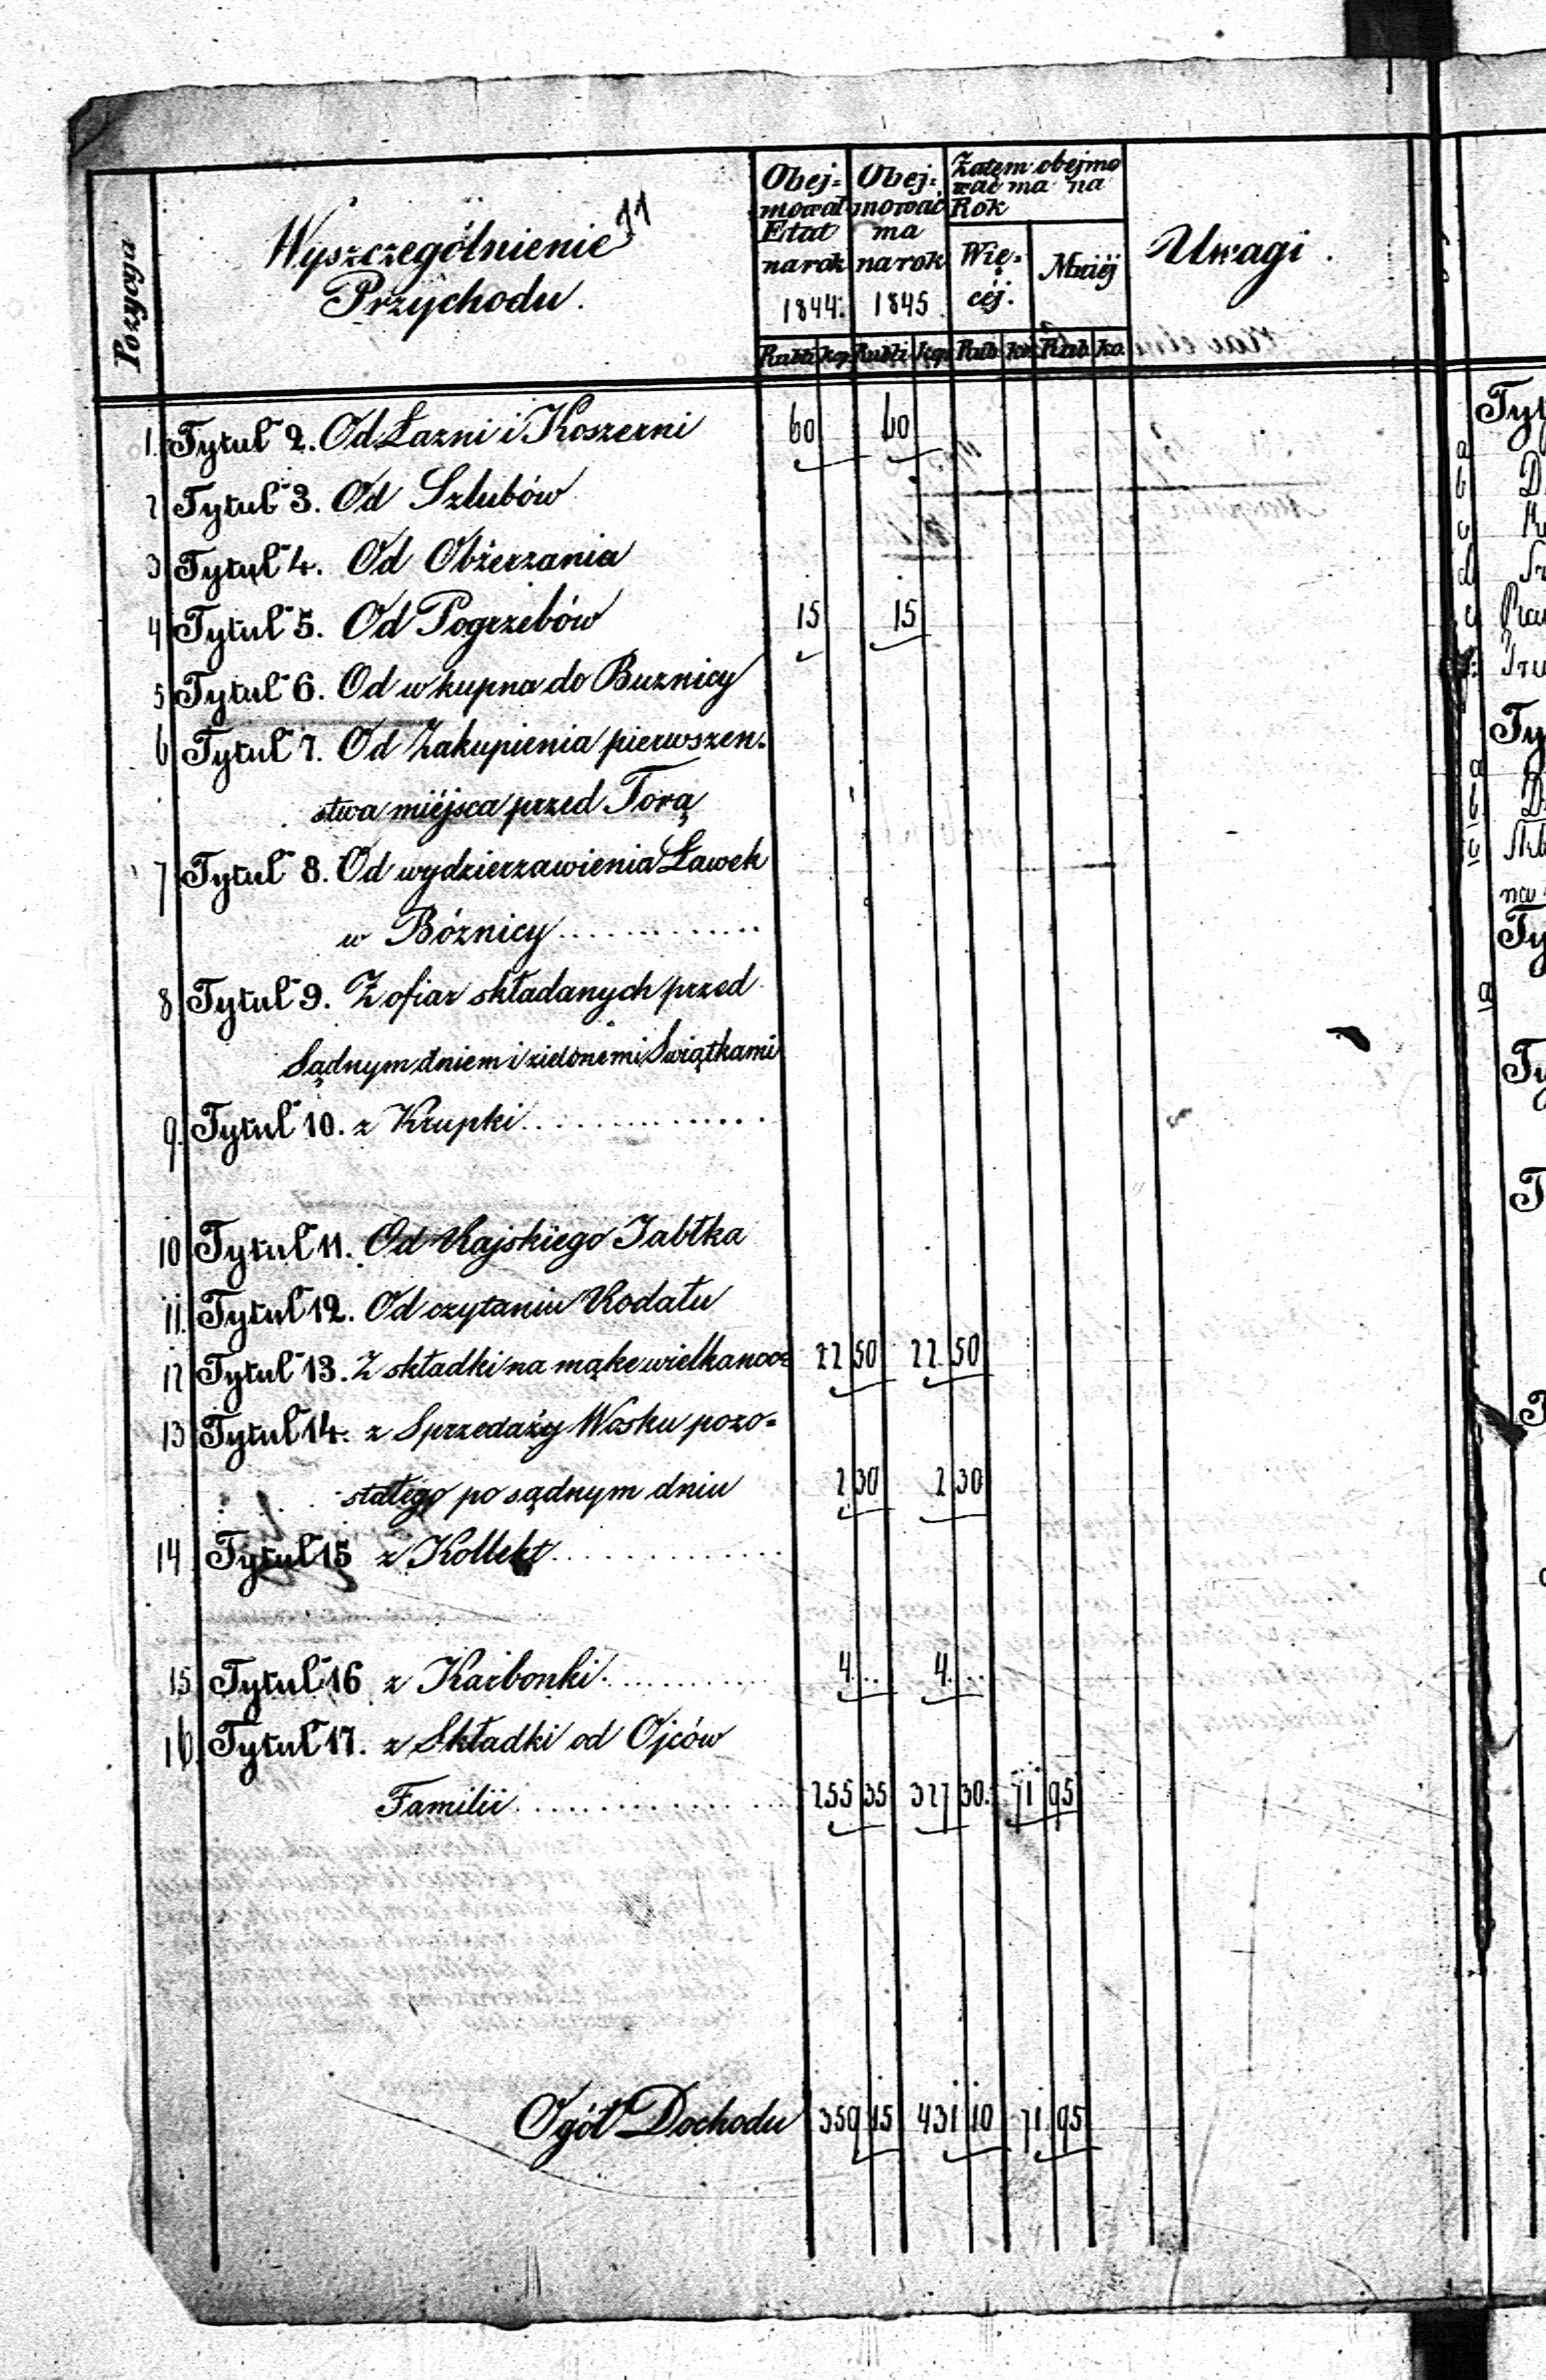 Pozycya
Wyszczególnienie
Przychodu.
11
Obej=
mował
Etat
na rok
1844.
Obej=
mować
ma
na rok
1845.
Zatem obejmo
wać ma na
Rok
Wię=
céj.
Mniéj
Uwagi.
Rubli kop Rubli kop Rub ko Rub ko
1. Tytuł 2. Od Łazni i Koszerni 60 60
2 Tytuł 3. Od Szlubów
3 Tytuł 4. Od Obżerzania
4 Tytuł 5. Od Pogrzebów 15 15
5 Tytuł 6. Od wkupna do Buznicy
6 Tytuł 7. Od Zakupienia pierwszen=
stwa miéjsca przed Torą
7 Tytuł 8. Od wydzierzawienia Ławek
w Bóznicy..............
8. Tytuł 9. Z ofiar składanych przed
Sądnym dniem i zielonemi Swiątkami
9. Tytuł 10. z Krupki...............
10 Tytuł 11. Od Rajskiego Jabłka
11. Tytuł 12. Od czytaniu Rodału
12 Tytuł 13. Z składki na mąke wielkanoc 22 50 22 50
13 Tytuł 14. z Sprzedaży Wosku pozo=
stałego po sądnym dniu 2 30 2 30
14 Tytuł 15 z Kollekt..............
15 Tytuł 16 z Karbonki........... 4 .. 4 ..
16. Tytuł 17. z Składki od Ojców
Familii.............. 255 35 327 30. 71 95
Ogół Dochodu 359 15 431 10 71 95